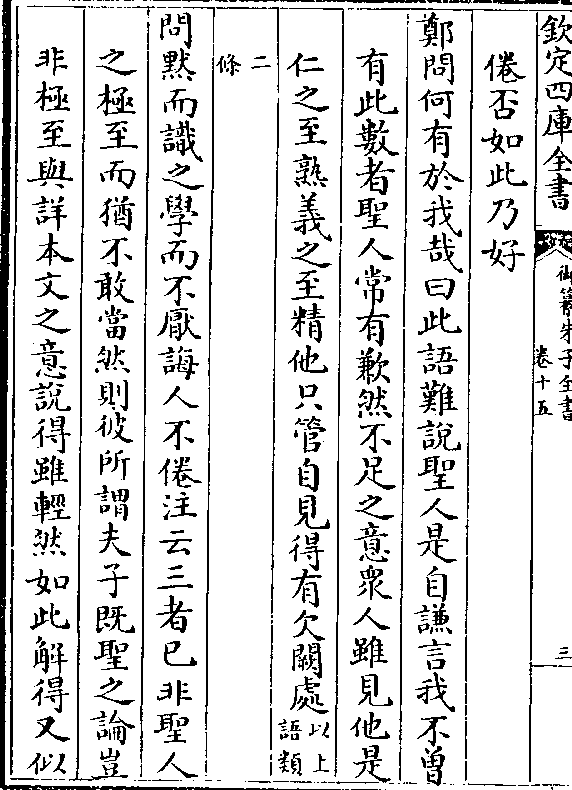 欽定四庫全書
御纂朱子全書
卷十五
三
倦否如此乃好
鄭問何有於我哉曰此語難說聖人是自謙言我不曾
有此數者聖人常有歉然不足之意衆人雖見他是
仁之至熟義之至精他只管自見得有欠闕處以上
語類
二
條
問默而識之學而不厭誨人不倦注云三者已非聖人
之極至而猶不敢當然則彼所謂夫子既聖之論豈
非極至與詳本文之意說得雖輕然如此解得又似